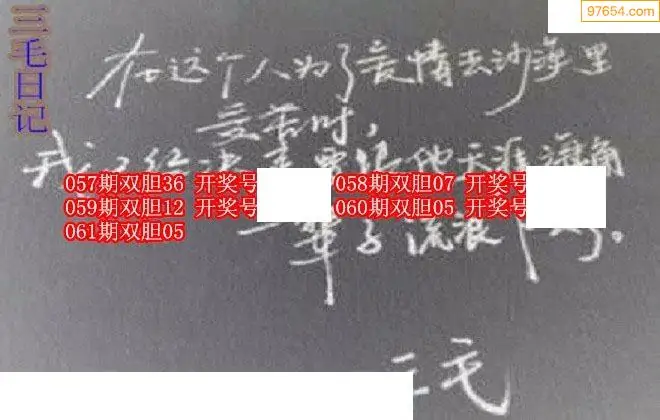 三毛日记
97654.com
在这个人为了爱情去沙漠里
受苦时，
我 已经决 要陪他天涯海角
057期双胆36 开奖号
058期双胆07 开奖号
059期双胆12 开奖号
060期双胆05 开奖号
061期双胆05
一辈子流浪下
三毛